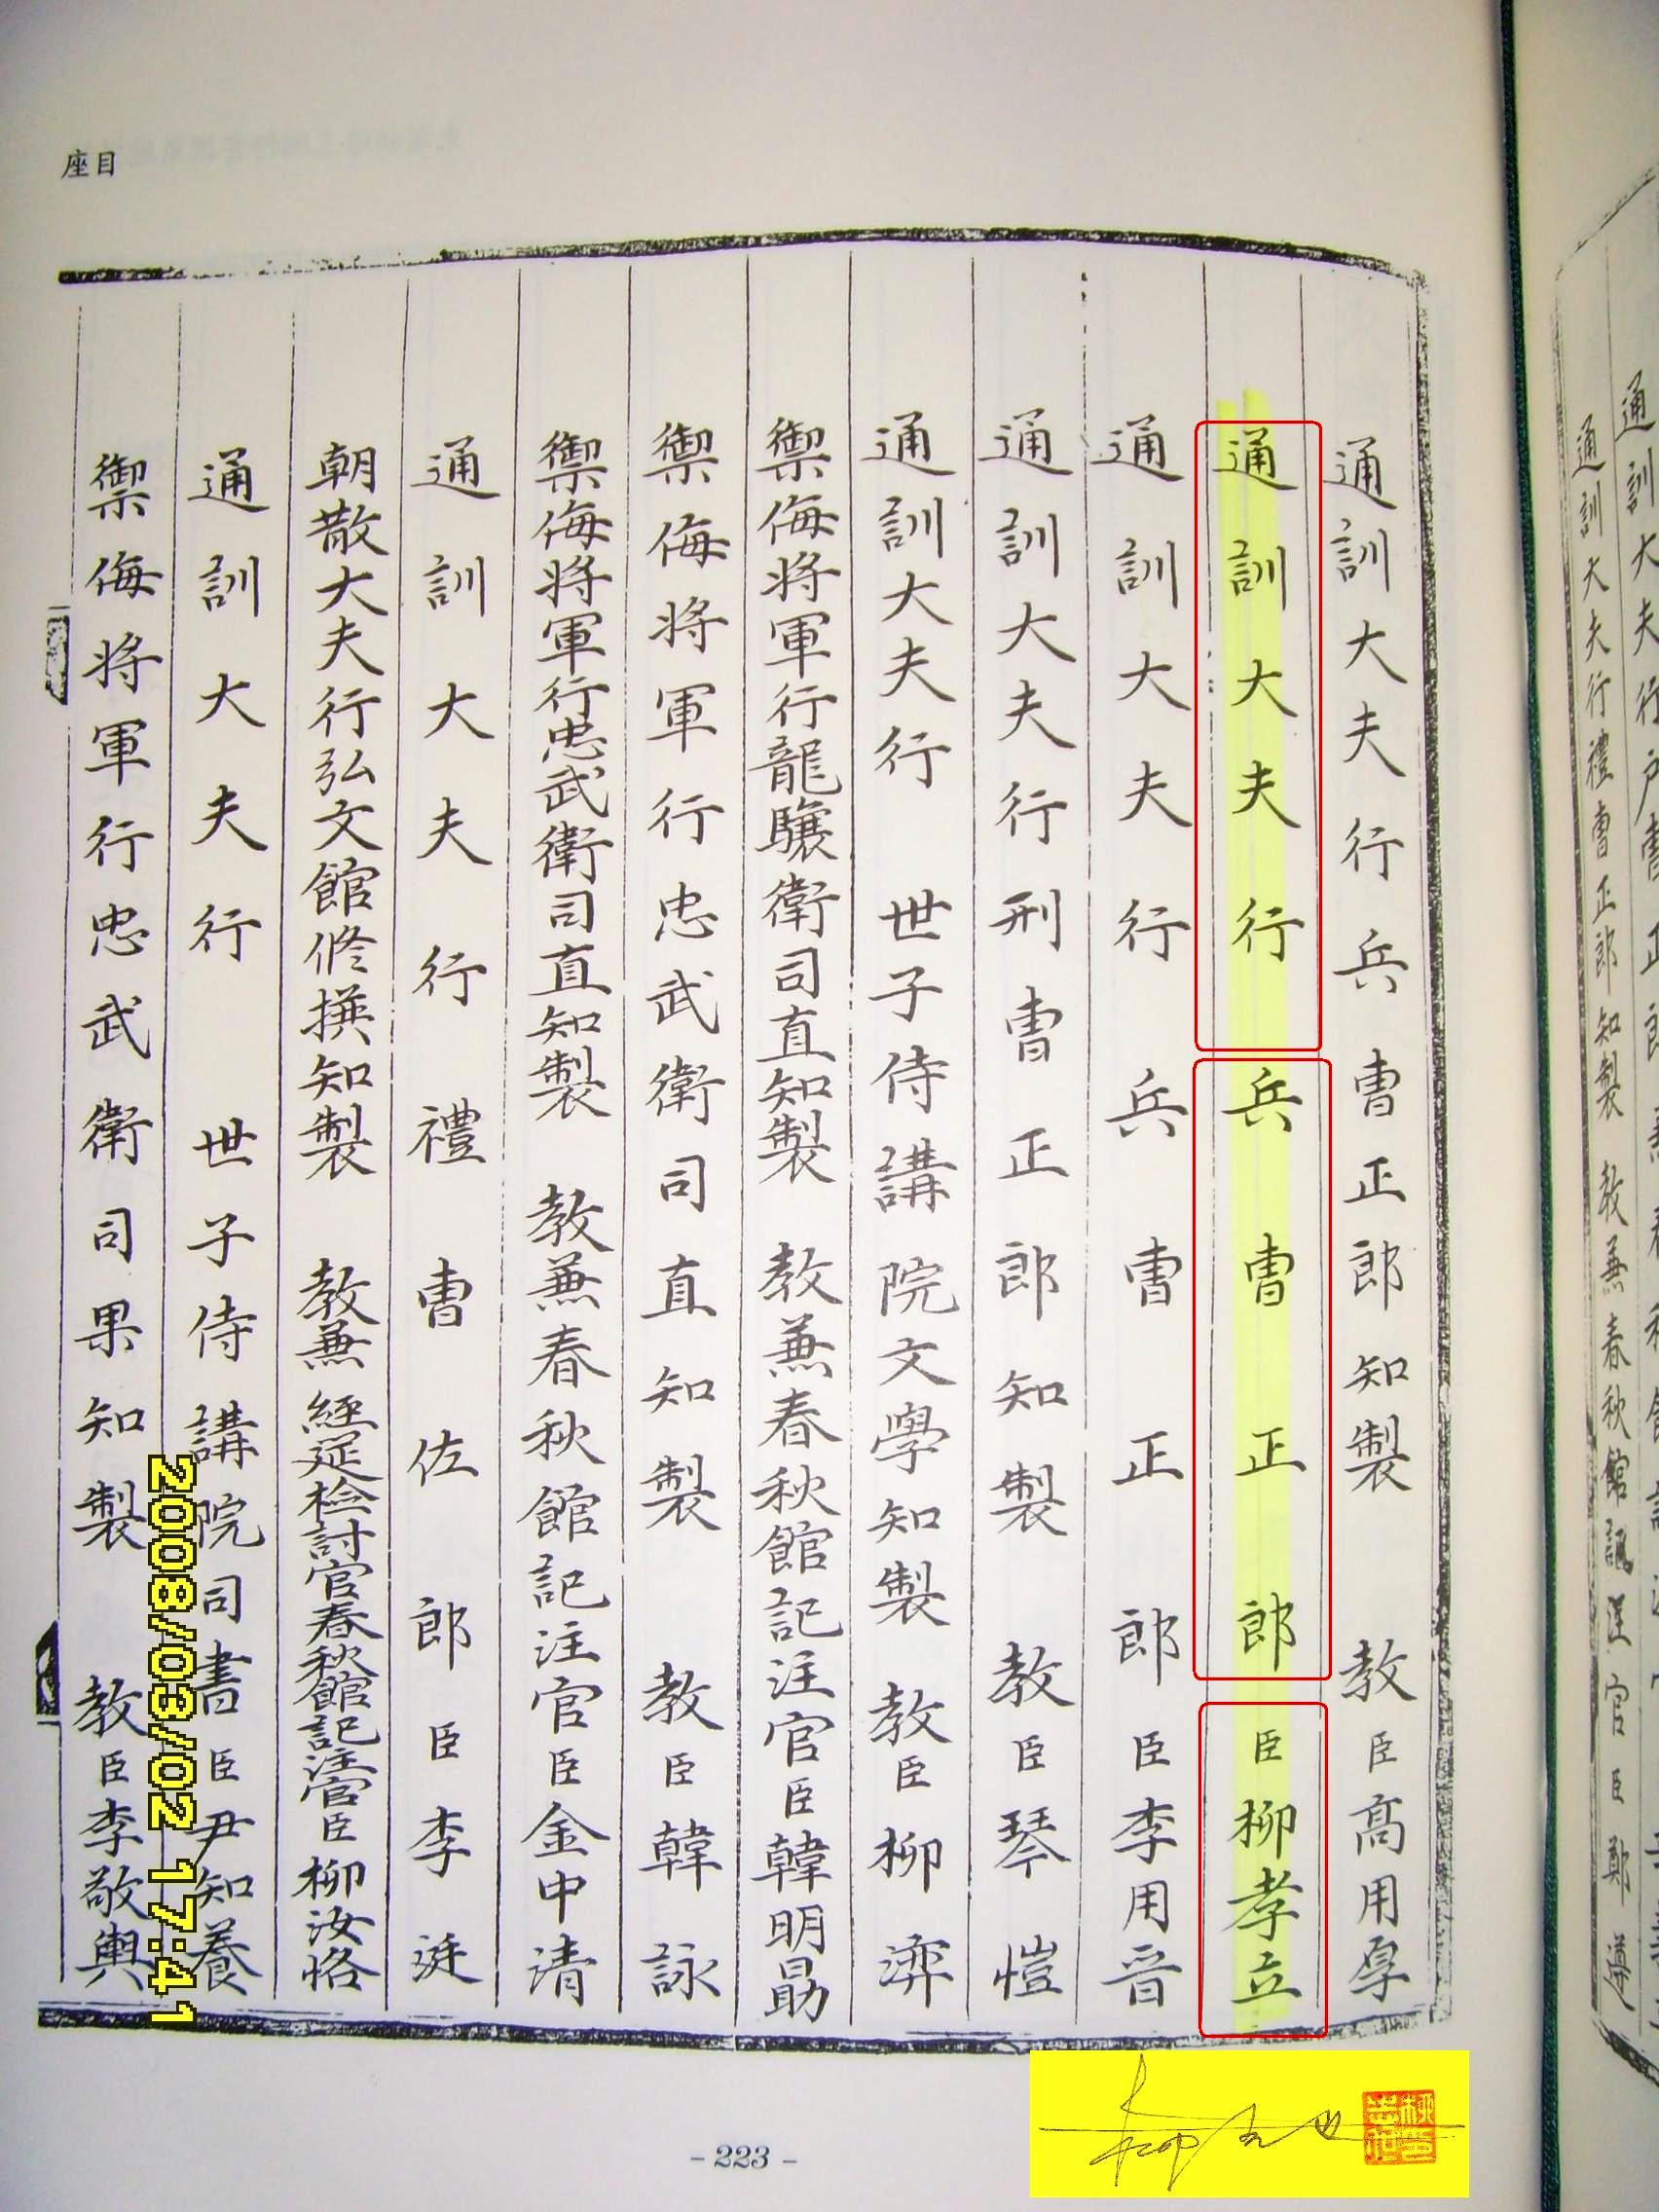 座目
通訓大夫行兵曹正郎知製 教臣高用厚
通訓大夫行兵曹正郎臣柳孝立
通訓大夫行兵曹正郎臣李用晋
通訓大夫行刑曹正郎知製 教臣琴愷
通訓大夫行 世子侍講院文學知製 教臣柳㳯
禦侮將軍行龍驤衛司直知製 教兼春秋館記注官臣韓明勗
禦侮將軍行忠武衛司直知製 教臣韓詠
禦侮將軍行忠武衛司直知製 教兼春秋館記注官臣金中清
通訓大夫行禮曹佐郎臣李涏
朝散大夫行弘文館修撰知製 教兼 經筵檢討官春秋館記注官臣柳汝恪
通訓大夫行 世子侍講院司書臣尹知養
禦侮將軍行忠武衛司果知製 教臣李敬輿
2008/03/02 17:41
- 223 -